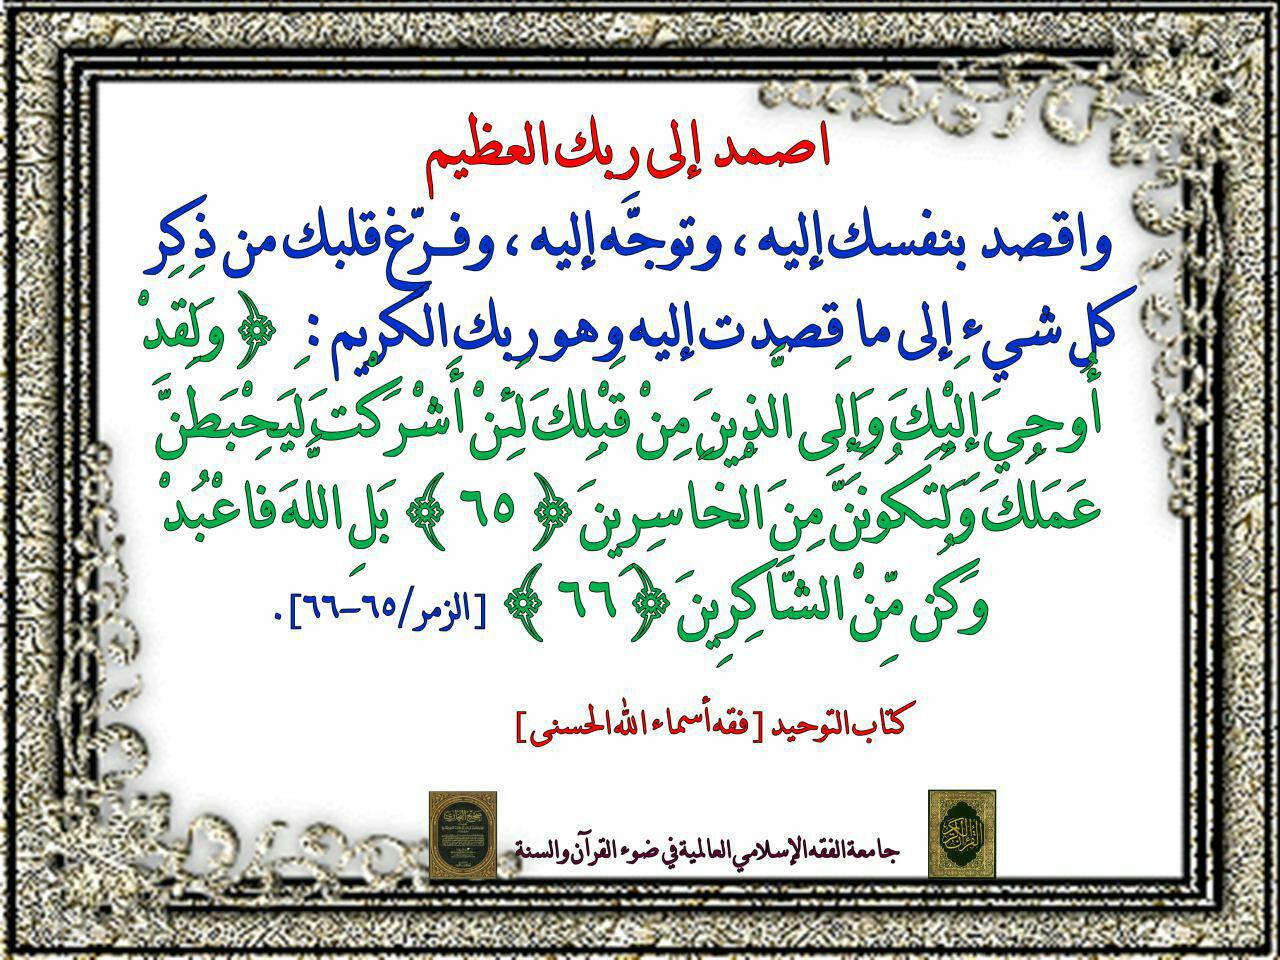 اصمد إلى ربك العظيم
واقصد بنفسك إليه ، وتوجَّه إليه ، وفـرّغ قلبك من ذِكِر
كل شيء إلى ما قصدت إليه وهو ربك الكريم : ﴿ ولَقِدْ
أُوحِيَ إِلَيْكَ وَإِلَى الَّذِينَ مِنْ قَبْلِكَ لَئِنْ أَشْرَكْتَ لَيَحِْبَطنَّ
عَمَلُكَ وَلَتَكُونَنَّ مِنَ الخاسِرِينَ ﴿ ٦٥ ﴾ بَلِ اللهَ فاعْبُدْ
وَكُن مِّنْ الشَّاكِرِينَ ﴿ ٦٦ ﴾ [الزمر/٦٥–٦٦].
كتاب التوحيد [فقه أسماء الله الحسنى]
جامعة الفقه الإسلامي العالمية في ضوء القرآن والسنة
صحيح البخاري
القرآن الكريم